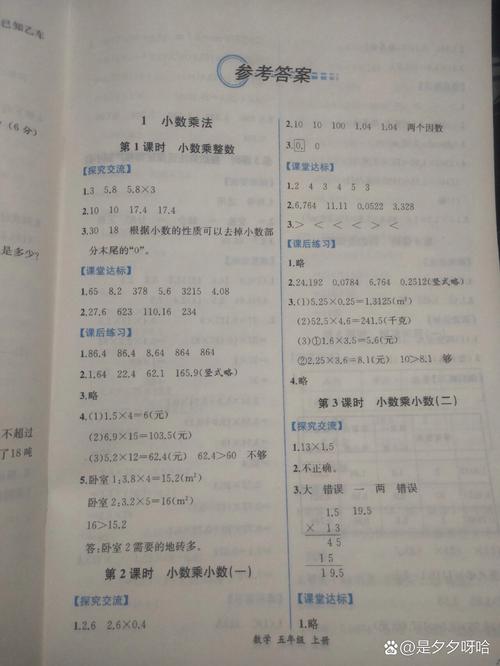 已知乙车
(6分)
是多少?
不超过
了18吨
参考答案
1 小数乘法
第1课时 小数乘整数
【探究交流】
1.3 5.8 5.8×3
2.10 10 17.4 17.4
3.30 18 根据小数的性质可以去掉小数部
分末尾的“0”。
【课堂达标】
1.65 8.2 378 5.6 3215 4.08
2.27.6 623 110.16 234
【课后练习】
1.86.4 86.4 8.64 864 864
2.1.64 22.4 62.1 165.9(竖式略)
3.略
4.(1)1.5×4=6(元)
(2)6.9×15=103.5(元)
(3)5.2×12=62.4(元) 62.4>60 不够
5.卧室1:3.8×4=15.2(m²)
卧室2:3.2×5=16(m²)
16>15.2
答:卧室2需要的地砖多。
第2课时 小数乘小数(一)
【探究交流】
1.2.6 2.6×0.4
2.10 10 100 1.04 1.04 两个因数
3.0. 0
【课堂达标】
1.2 4 3 4 5 3
2.6.764 11.11 0.0522 3.328
3.> < < < < <
【课后练习】
1.略
2.24.192 0.0784 6.764 0.2512(竖式略)
3.(1)5.25×0.25=1.3125(m²)
(2)52.5×4.6=241.5(千克)
(3)①1.6×3.5=5.6(元)
②2.25×3.6=8.1(元) 10>8.1 够
4.略
第3课时 小数乘小数(二)
【探究交流】
1.13×1.5
2.不正确。
3.大 错误 一 两 错误
1.5 19.5
× 13
45
15
19.5
【课堂达标】
1.略
数学 五年级 上册
@是夕夕呀哈